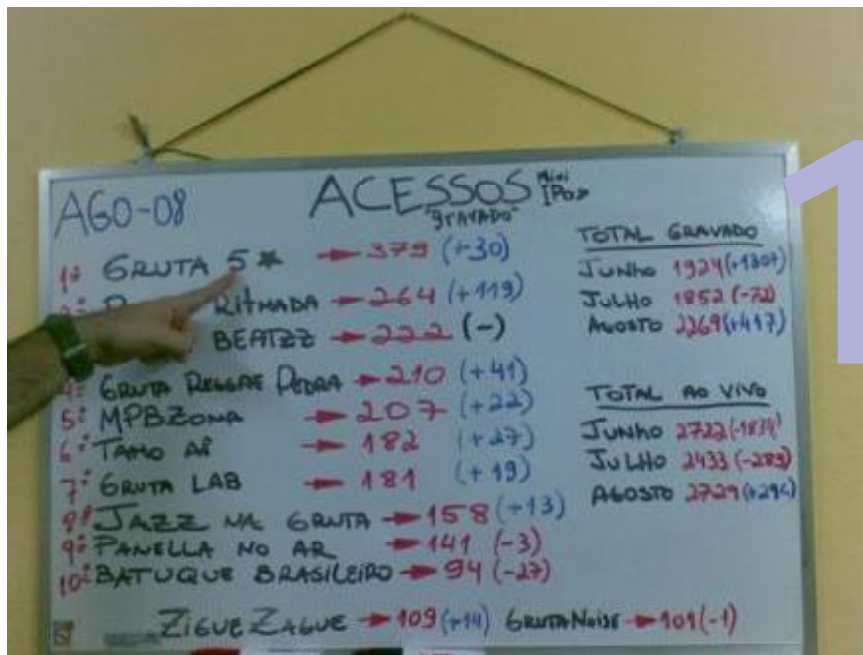 AGO-08
ACESSOS Mini IPod
"gravado"
1º GRUTA 5* → 379 (+30)
RITMADA → 264 (+119)
BEATZZ → 222 (-)
4º GRUTA REGGAE PEDRA → 210 (+41)
5º MPBZONA → 207 (+22)
6º TAMO AÍ → 182 (+27)
7º GRUTA LAB → 181 (+19)
8º JAZZ NA GRUTA → 158 (+13)
9º PANELLA NO AR → 141 (-3)
10º BATUQUE BRASILEIRO → 94 (-27)
ZIGUE ZAGUE → 109 (+14) GRUTA NOISE → 101 (-1)
TOTAL GRAVADO
JUNHO 1924
JULHO 1852 (-72)
AGOSTO 2269 (+417)
TOTAL AO VIVO
JUNHO 2722
JULHO 2433 (-289)
AGOSTO 2729 (+296)
1